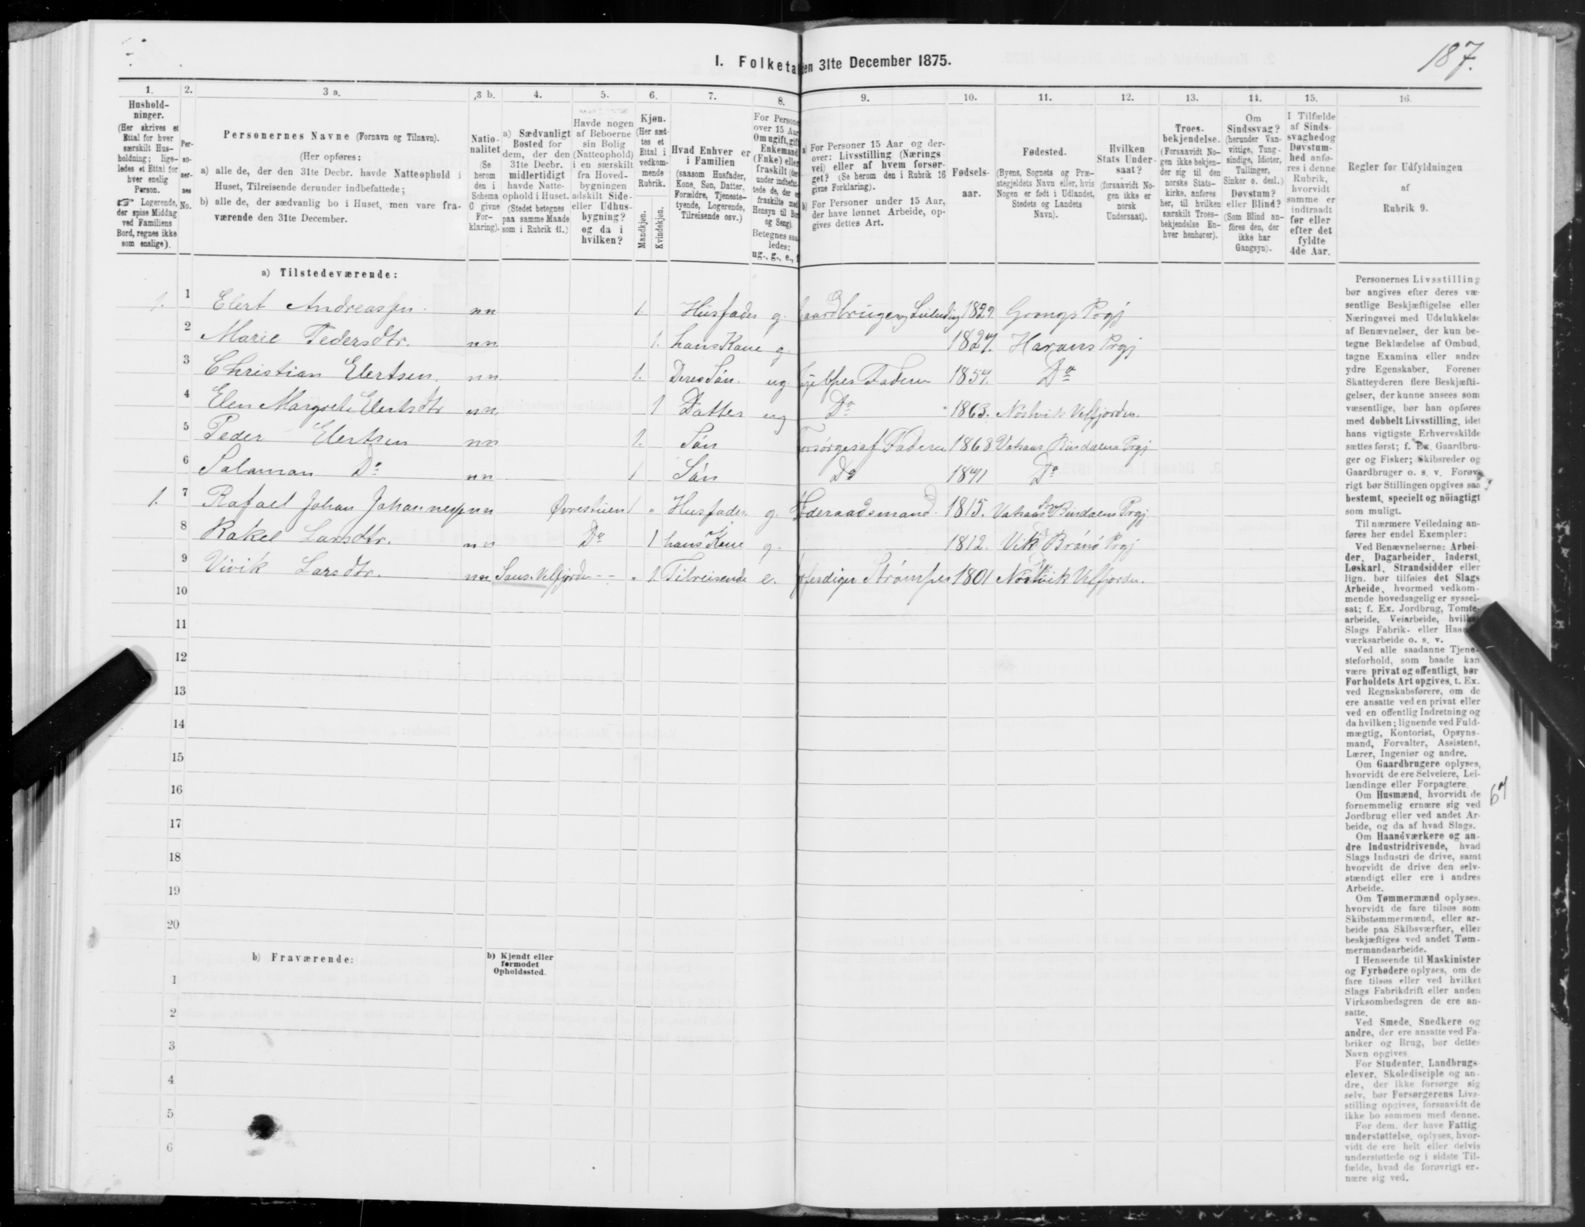 187.
I. Folketa en 31te December 1875.
1.
Hushold-
ninger.
(Her skrives et
Ettal for hver
særskilt Hus-
holdning; lige-
ledes et Ettal for
hver enslig
Person.
☞ Logerende,
der spise Middag
ved Familiens
Bord, regnes ikke
som enslige).
2.
Per-
so-
ner-
nes
No.
3 a.
Personernes Navne (Fornavn og Tilnavn).
(Her opføres:
a) alle de, der den 31te Decbr. havde Natteophold i
Huset, Tilreisende derunder indbefattede;
b) alle de, der sædvanlig bo i Huset, men vare fra-
værende den 31te December.
3 b.
Natio-
nalitet
(Se
herom
den i
Schema
C givne
For-
klaring).
4.
a) Sædvanligt
Bosted for
dem, der den
31te Decbr.
midlertidigt
havde Natte-
ophold i Huset.
(Stedet betegnes
paa samme Maade
som i Rubrik 11.)
5.
Havde nogen
af Beboerne
sin Bolig
(Natteophold)
i en særskilt
fra Hoved-
bygningen
adskilt Side-
eller Udhus-
bygning?
og da i
hvilken?
6.
Kjøn.
(Her sæt-
tes et
Ettal i
vedkom-
mende
Rubrik.
Mandkjøn.
Kvindekjøn.
7.
Hvad Enhver er
i Familien
(saasom Husfader,
Kone, Søn, Datter,
Forældre, Tjeneste-
tyende, Logerende,
Tilreisende osv.)
8.
For Persone
over 15 Aar
Om ugift, gift
Enkemand
(Enke) elle
fraskilt
under indbefat-
tede de, der
fraskilte
Hensyn til Bo
og Seng).
Betegnes saa
ledes:
ug., g., e.,
9.
a) For Personer 15 Aar og der-
over: Livsstilling (Nærings-
vei) eller af hvem forsør-
get? (Se herom den i Rubrik 16
givne Forklaring).
b) For Personer under 15 Aar,
der have lønnet Arbeide, op-
gives dettes Art.
10.
Fødsels-
aar.
11.
Fødested.
(Byens, Sognets og Præ-
stegjeldets Navn eller, hvis
Nogen er født i Udlandet,
Stedets og Landets
Navn).
12.
Hvilken
Stats Under-
saat?
(forsaavidt No-
gen ikke er
norsk
Undersaat).
13.
Troes-
bekjendelse.
(Forsaavidt No-
gen ikke bekjen-
der sig til den
norske Stats-
kirke, anføres
her, til hvilken
særskilt Troes-
bekjendelse En-
hver henhører).
14.
Om
Sindssvag?
(herunder Van-
vittige, Tung-
sindige, Idioter,
Tullinger,
Sinker o. desl.)
Døvstum?
eller Blind?
(Som Blind an-
føres den, der
ikke har
Gangsyn).
15.
I Tilfælde
af Sinds-
svaghed og
Døvstum-
hed anfø-
res i denne
Rubrik,
hvorvidt
samme er
indtraadt
før eller
efter det
fyldte
4de Aar.
16.
Regler før Udfyldningen
af
Rubrik 9.
a) Tilstedeværende:
1. 1 Elert Andreassen. nn 1. Husfader g. Gaardbruger og Leilending 1829 Grongs Prgj
2 Marie Pedersdtr. nn 1. hans Kone g. 1827. Harans Prgj
3 Christian Elertsen. nn 1. Deres Søn. ug hjelper Faderen 1857. Do
4 Elen Margrete Elertsdtr nn 1 Datter ug Do 1863. Nostvik Velfjorden.
5 Peder Elertsen nn 1. Søn Forsørges af Faderen 1868 Vatsaas Bindalens Prgj
6 Salamon Do nn 1 Søn Do 1871 Do
1. 7 Rafael Johan Johannesen nn Øvrestuen 1 " Husfader g. Føderaadsmand 1815. Vatsaas Bindalens Prgj
8 Rakel Larsdtr. nn Do 1 hans Kone g. 1812. Vik Brønø Prgj
9 Vivik Larsdtr. nn Saus. Velfjorden -- " 1. Tilreisende e. forferdiger Strømper 1801 Nostvik Velfjorden.
10
11
12
13
14
15
16
17
18
19
20
b) Fraværende:
b) Kjendt eller
formodet
Opholdssted.
1
2
3
4
5
6
Personernes Livsstilling
bør angives efter deres væ-
sentlige Beskjæftigelse eller
Næringsvei med Udelukkelse
af Benævnelser, der kun be-
tegne Beklædelse af Ombud,
tagne Examina eller andre
ydre Egenskaber. Forener
Skatteyderen flere Beskjæfti-
gelser, der kunne ansees som
væsentlige, bør han opføres
med dobbelt Livsstilling, idet
hans vigtigste Erhvervskilde
sættes først; f. Ex. Gaardbru-
ger og Fisker; Skibsreder og
Gaardbruger o. s. v. Forøv-
rigt bør Stillingen opgives saa
bestemt, specielt og nøiagtigt
som muligt.
Til nærmere Veiledning an-
føres her endel Exempler:
Ved Benævnelserne: Arbei-
der, Dagarbeider, Inderst,
Løskarl, Strandsidder eller
lign. bør tilføies det Slags
Arbeide, hvormed vedkom-
mende hovedsagelig er syssel-
sat; f. Ex. Jordbrug, Tomte-
arbeide, Veiarbeide, hvilket
Slags Fabrik- eller Haand-
værksarbeide o. s. v.
Ved alle saadanne Tjene-
steforhold, som baade kan
være privat og offentligt, bør
Forholdets Art opgives, t. Ex.
ved Regnskabsførere, om de
ere ansatte ved en privat eller
ved en offentlig Indretning og
da hvilken; lignende ved Fuld-
mægtig, Kontorist, Opsyns-
mand, Forvalter, Assistent,
Lærer, Ingeniør og andre.
Om Gaardbrugere oplyses,
hvorvidt de ere Selveiere, Lei-
lændinge eller Forpagtere.
Om Husmænd, hvorvidt de
fornemmelig ernære sig ved
Jordbrug eller ved andet Ar-
beide, og da af hvad Slags.
Om Haandværkere og an-
dre Industridrivende, hvad
Slags Industri de drive, samt
hvorvidt de drive den selv-
stændigt eller ere i andres
Arbeide.
Om Tømmermænd oplyses,
hvorvidt de fare tilsøs som
Skibstømmermænd, eller ar-
beide paa Skibsværfter, eller
beskjæftiges ved andet Tøm-
mermandsarbeide.
I Henseende til Maskinister
og Fyrbødere oplyses, om de
fare tilsøs eller ved hvilket
Slags Fabrikdrift eller anden
Virksomhedsgren de ere an-
satte.
Ved Smede, Snedkere og
andre, der ere ansatte ved Fa-
briker og Brug, bør dettes
Navn opgives.
For Studenter, Landbrugs-
elever, Skoledisciple og an-
dre, der ikke forsørge sig
selv, bør Forsørgerens Livs-
stilling opgives, forsaavidt de
ikke bo sammen med denne.
For dem, der have Fattig-
understøttelse, oplyses, hvor-
vidt de ere helt eller delvis
understøttede og i sidste Til-
fælde, hvad de forøvrigt er-
nære sig ved.
67